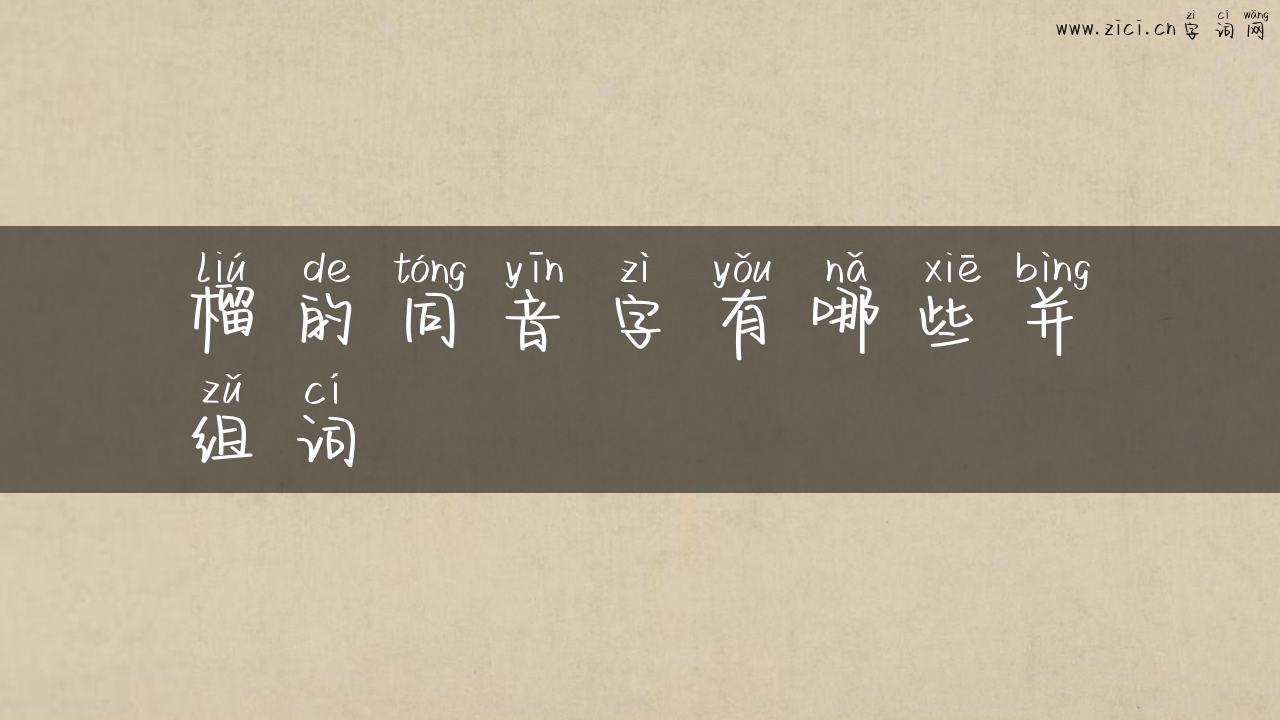 zì cí wǎng
www.zici.cn 字词网
liú de tóng yīn zì yǒu nǎ xiē bìng
榴的同音字有哪些并
zǔ cí
组词